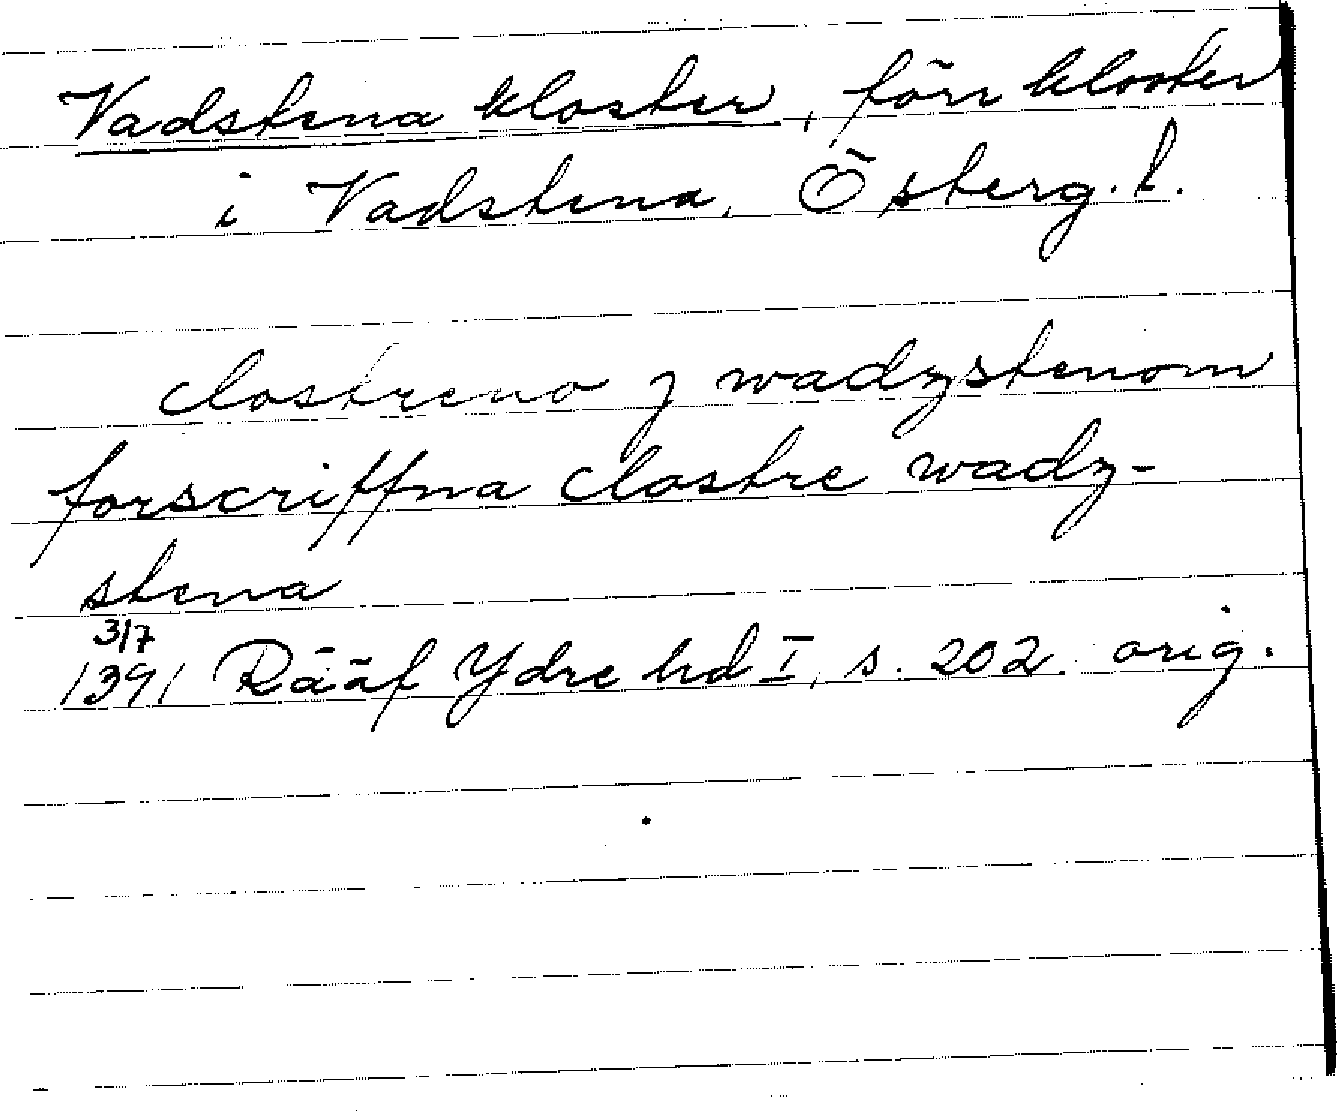 Vadstena kloster, förr kloster
i Vadstena, Österg. l.
clostreno j wadzstenom
forscriffna clostre wadz-
stena
3/7
1391 Rääf Ydre hd I, s. 202. orig.